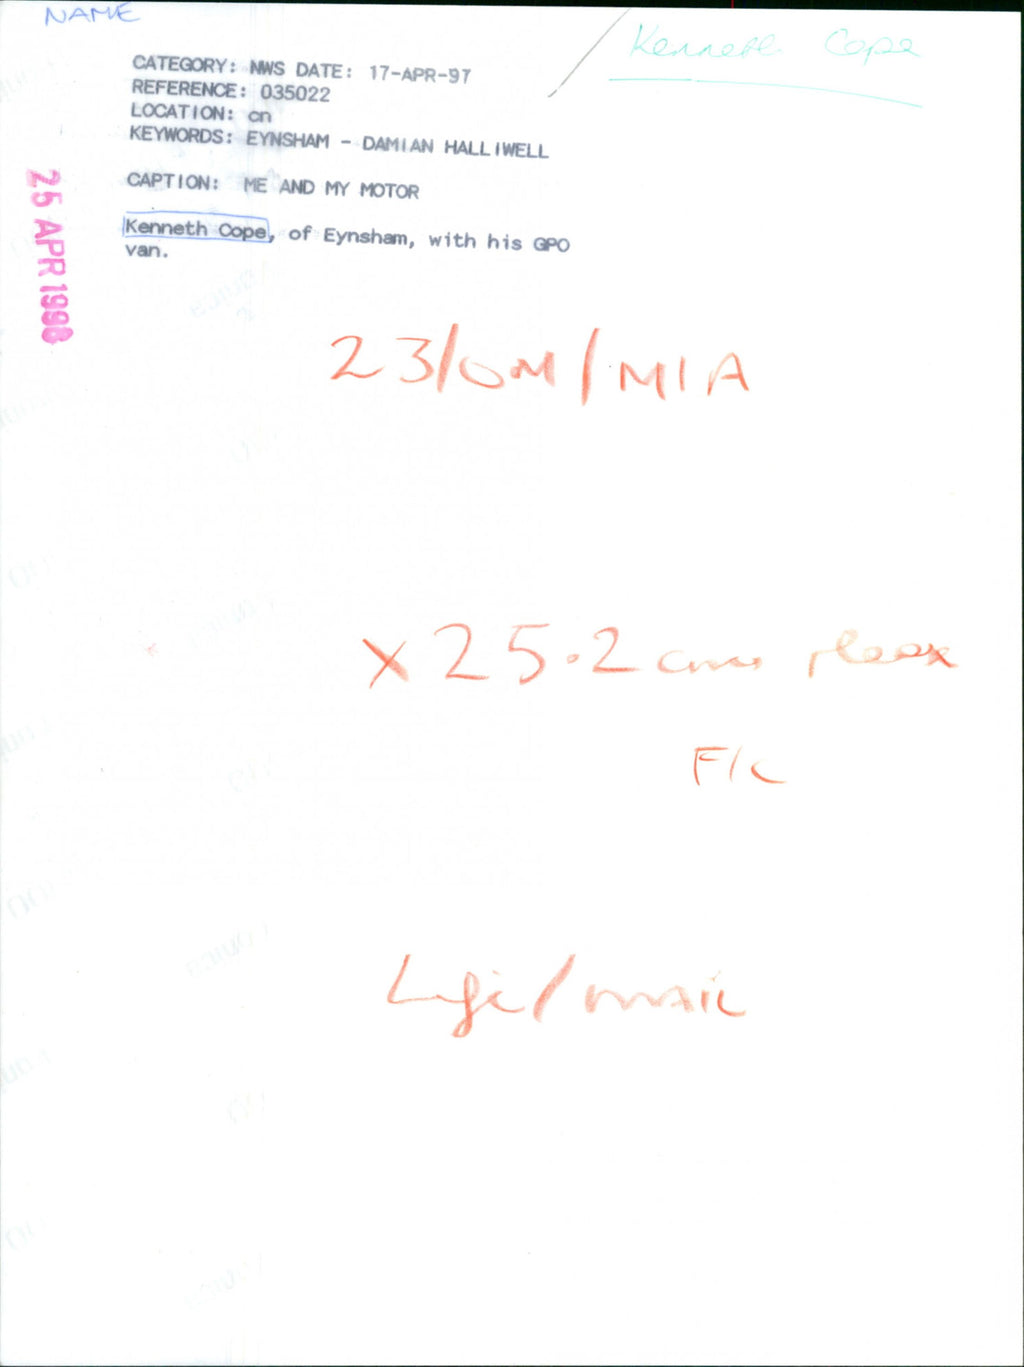 NAME
Kenneth Cope
CATEGORY: NWS DATE: 17-APR-97
REFERENCE: 035022
LOCATION: cn
KEYWORDS: EYNSHAM - DAMIAN HALLIWELL
CAPTION: ME AND MY MOTOR
Kenneth Cope, of Eynsham, with his GPO
van.
25 APR 1998
23/OM/MIA
x 25.2 cms please
F/C
/mail